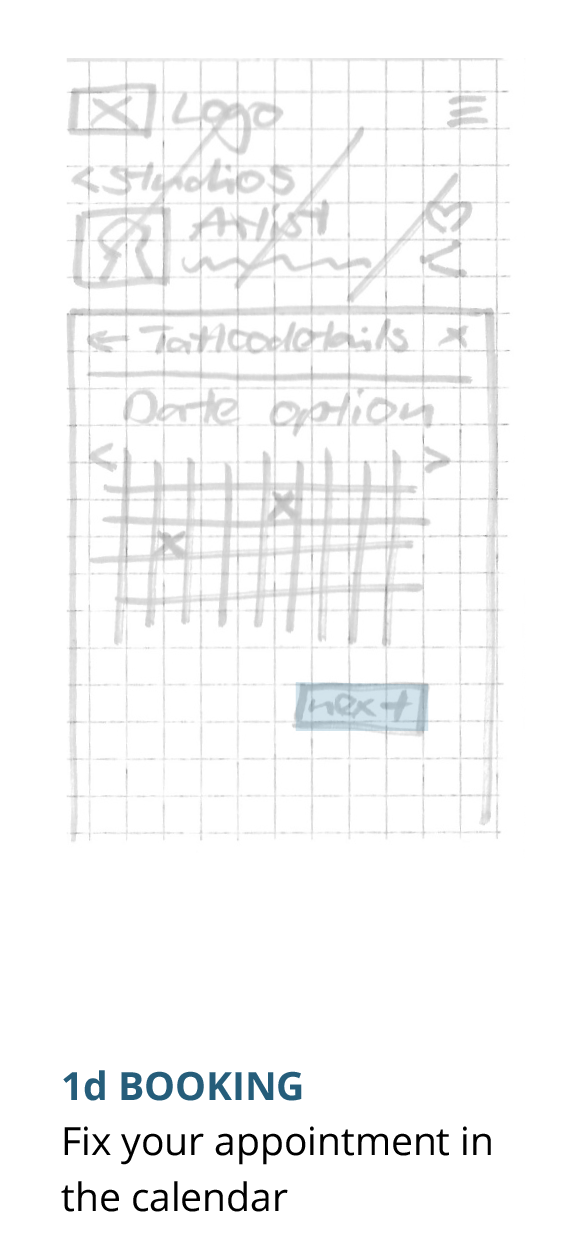 Logo
< Studios
Artist
← Tattoodetails x
Date option
< >
next
1d BOOKING
Fix your appointment in
the calendar